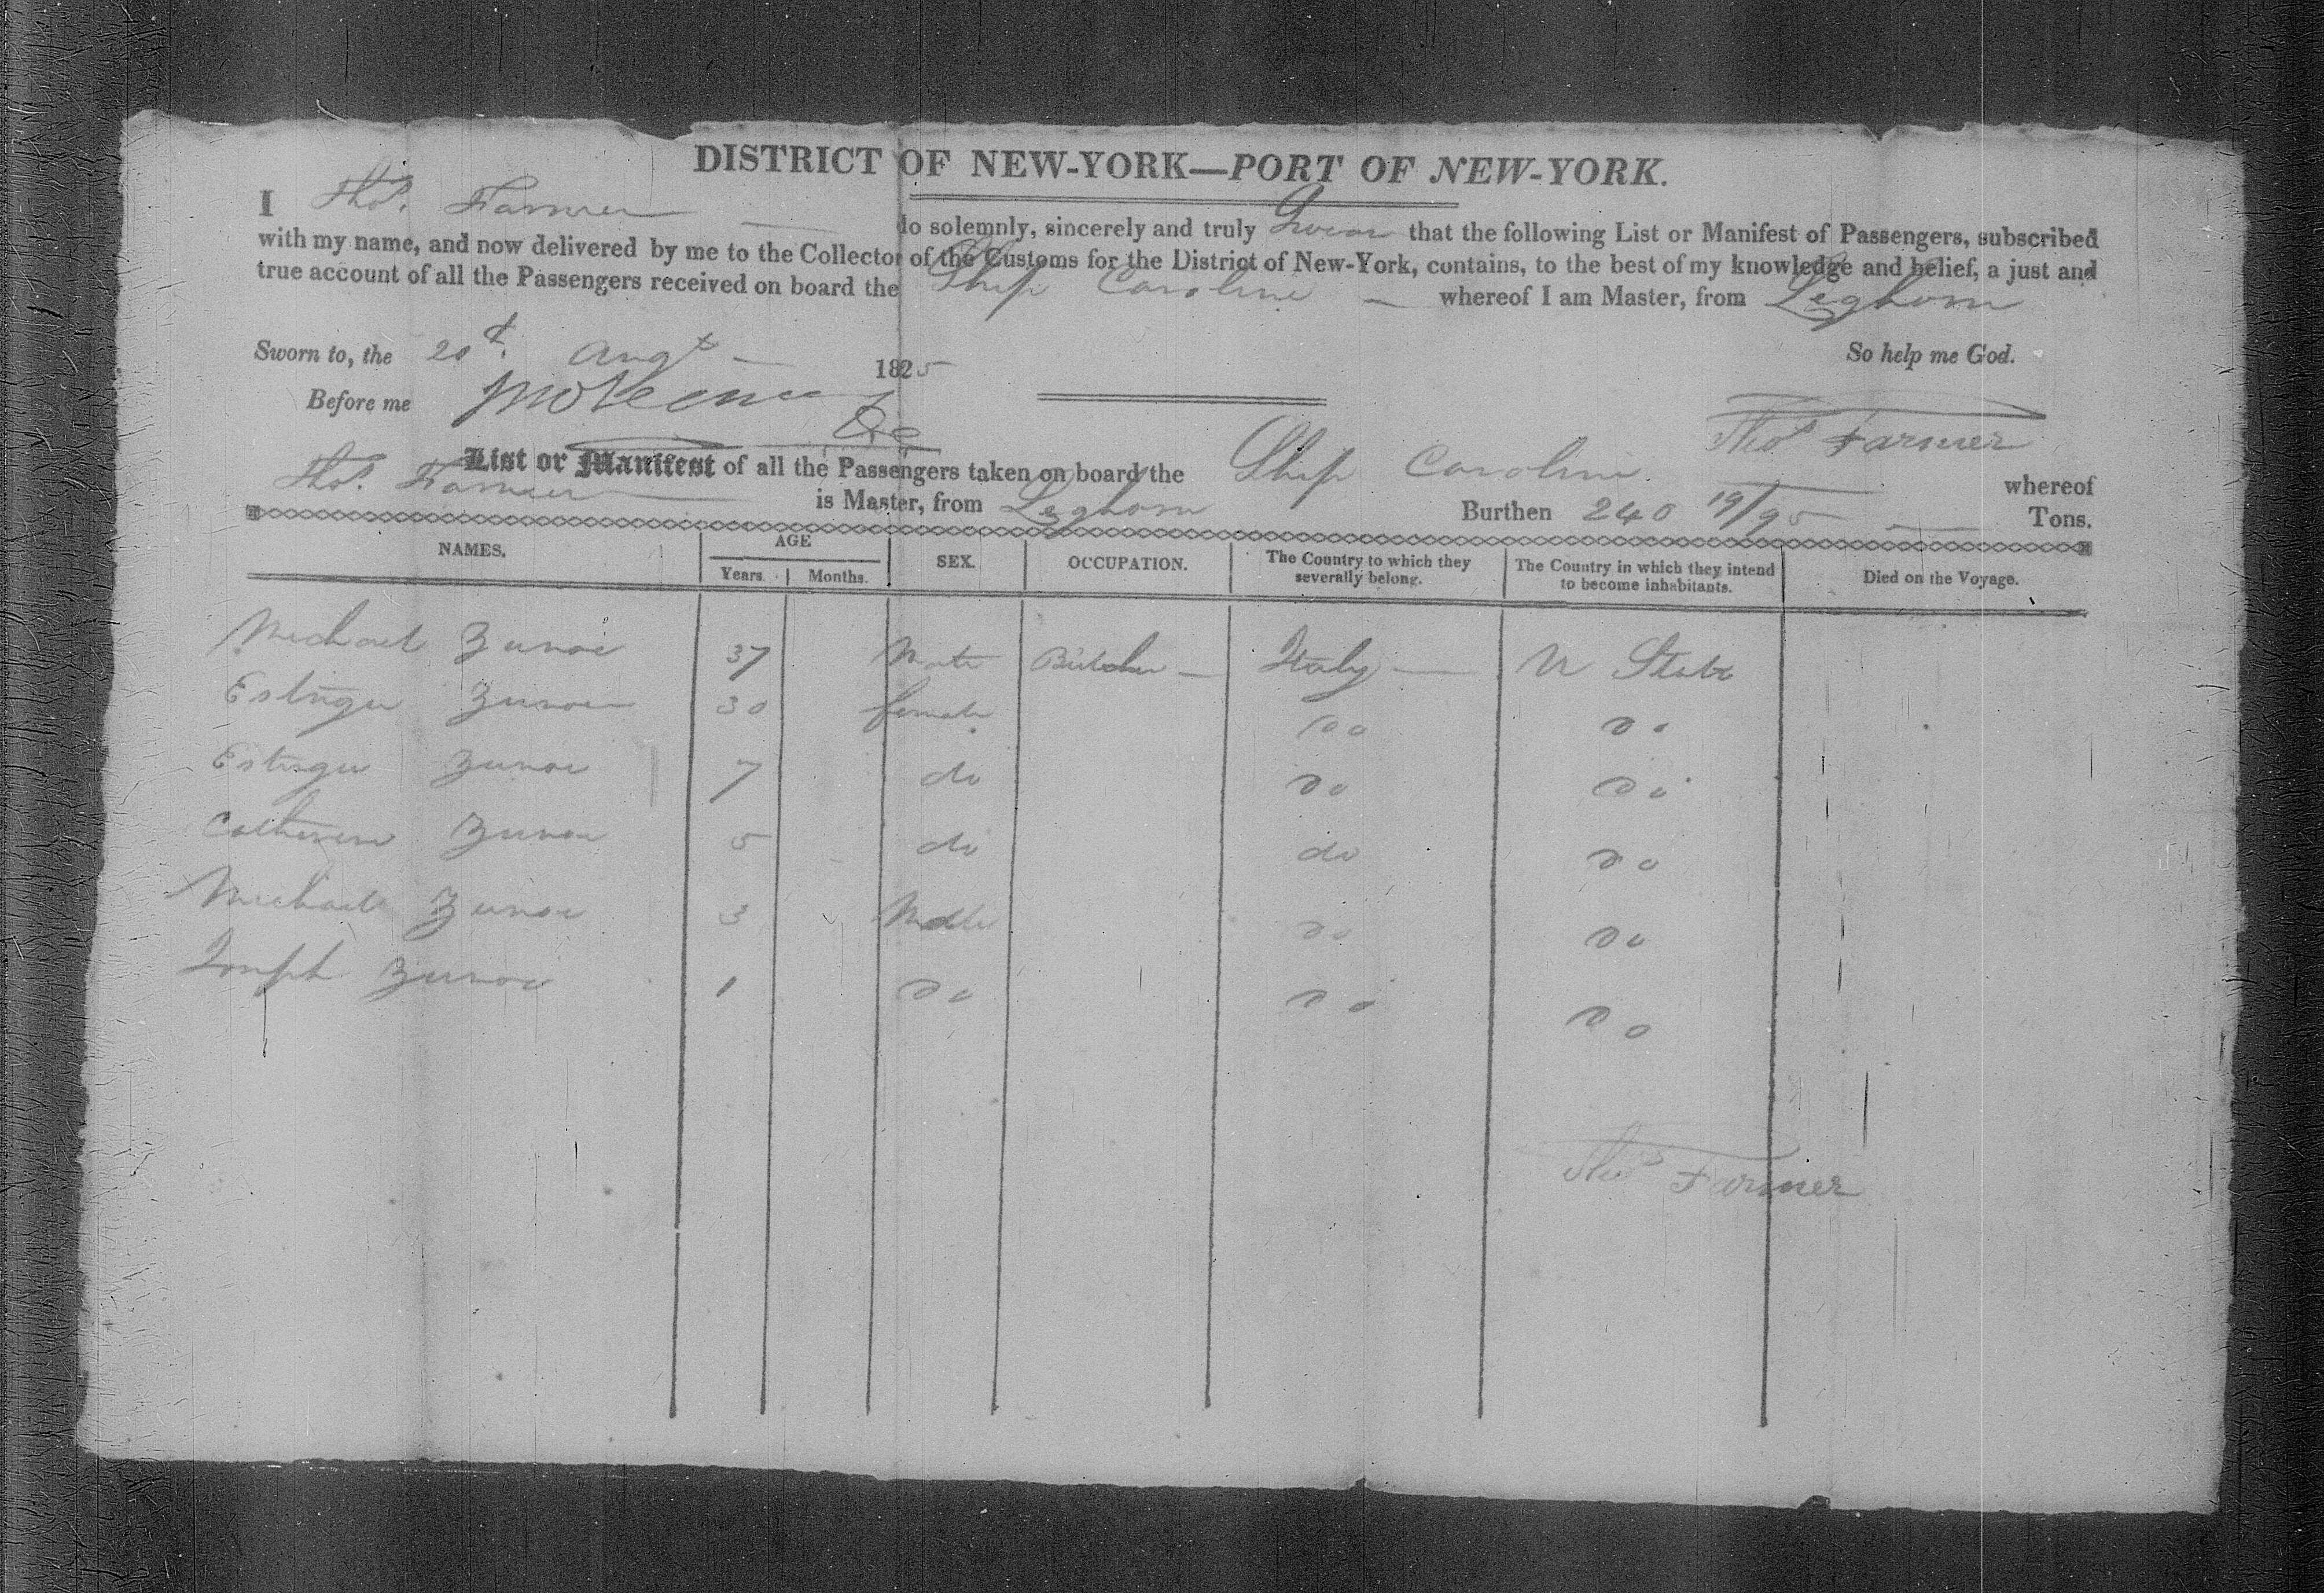 DISTRICT OF NEW-YORK—PORT OF NEW-YORK.
I Thos. Farmer do solemnly, sincerely and truly Swear that the following List or Manifest of Passengers, subscribed
with my name, and now delivered by me to the Collector of the Customs for the District of New-York, contains, to the best of my knowledge and belief, a just and
true account of all the Passengers received on board the Ship Caroline whereof I am Master, from Leghorn
Sworn to, the 20th. Augt 1825 So help me God.
Before me
Thos Farmer
List or Manifest of all the Passengers taken on board the Ship Caroline whereof
Thos. Farmer is Master, from Leghorn Burthen 240 19/95 Tons.
NAMES. AGE Years. Months. SEX. OCCUPATION. The Country to which they severally belong. The Country in which they intend to become inhabitants. Died on the Voyage.
Michael 37 Male Butcher Italy U State
30 female do do
7 do do do
5 do do do
Michael 3 Male do do
Joseph 1 do do do
Thos Farmer